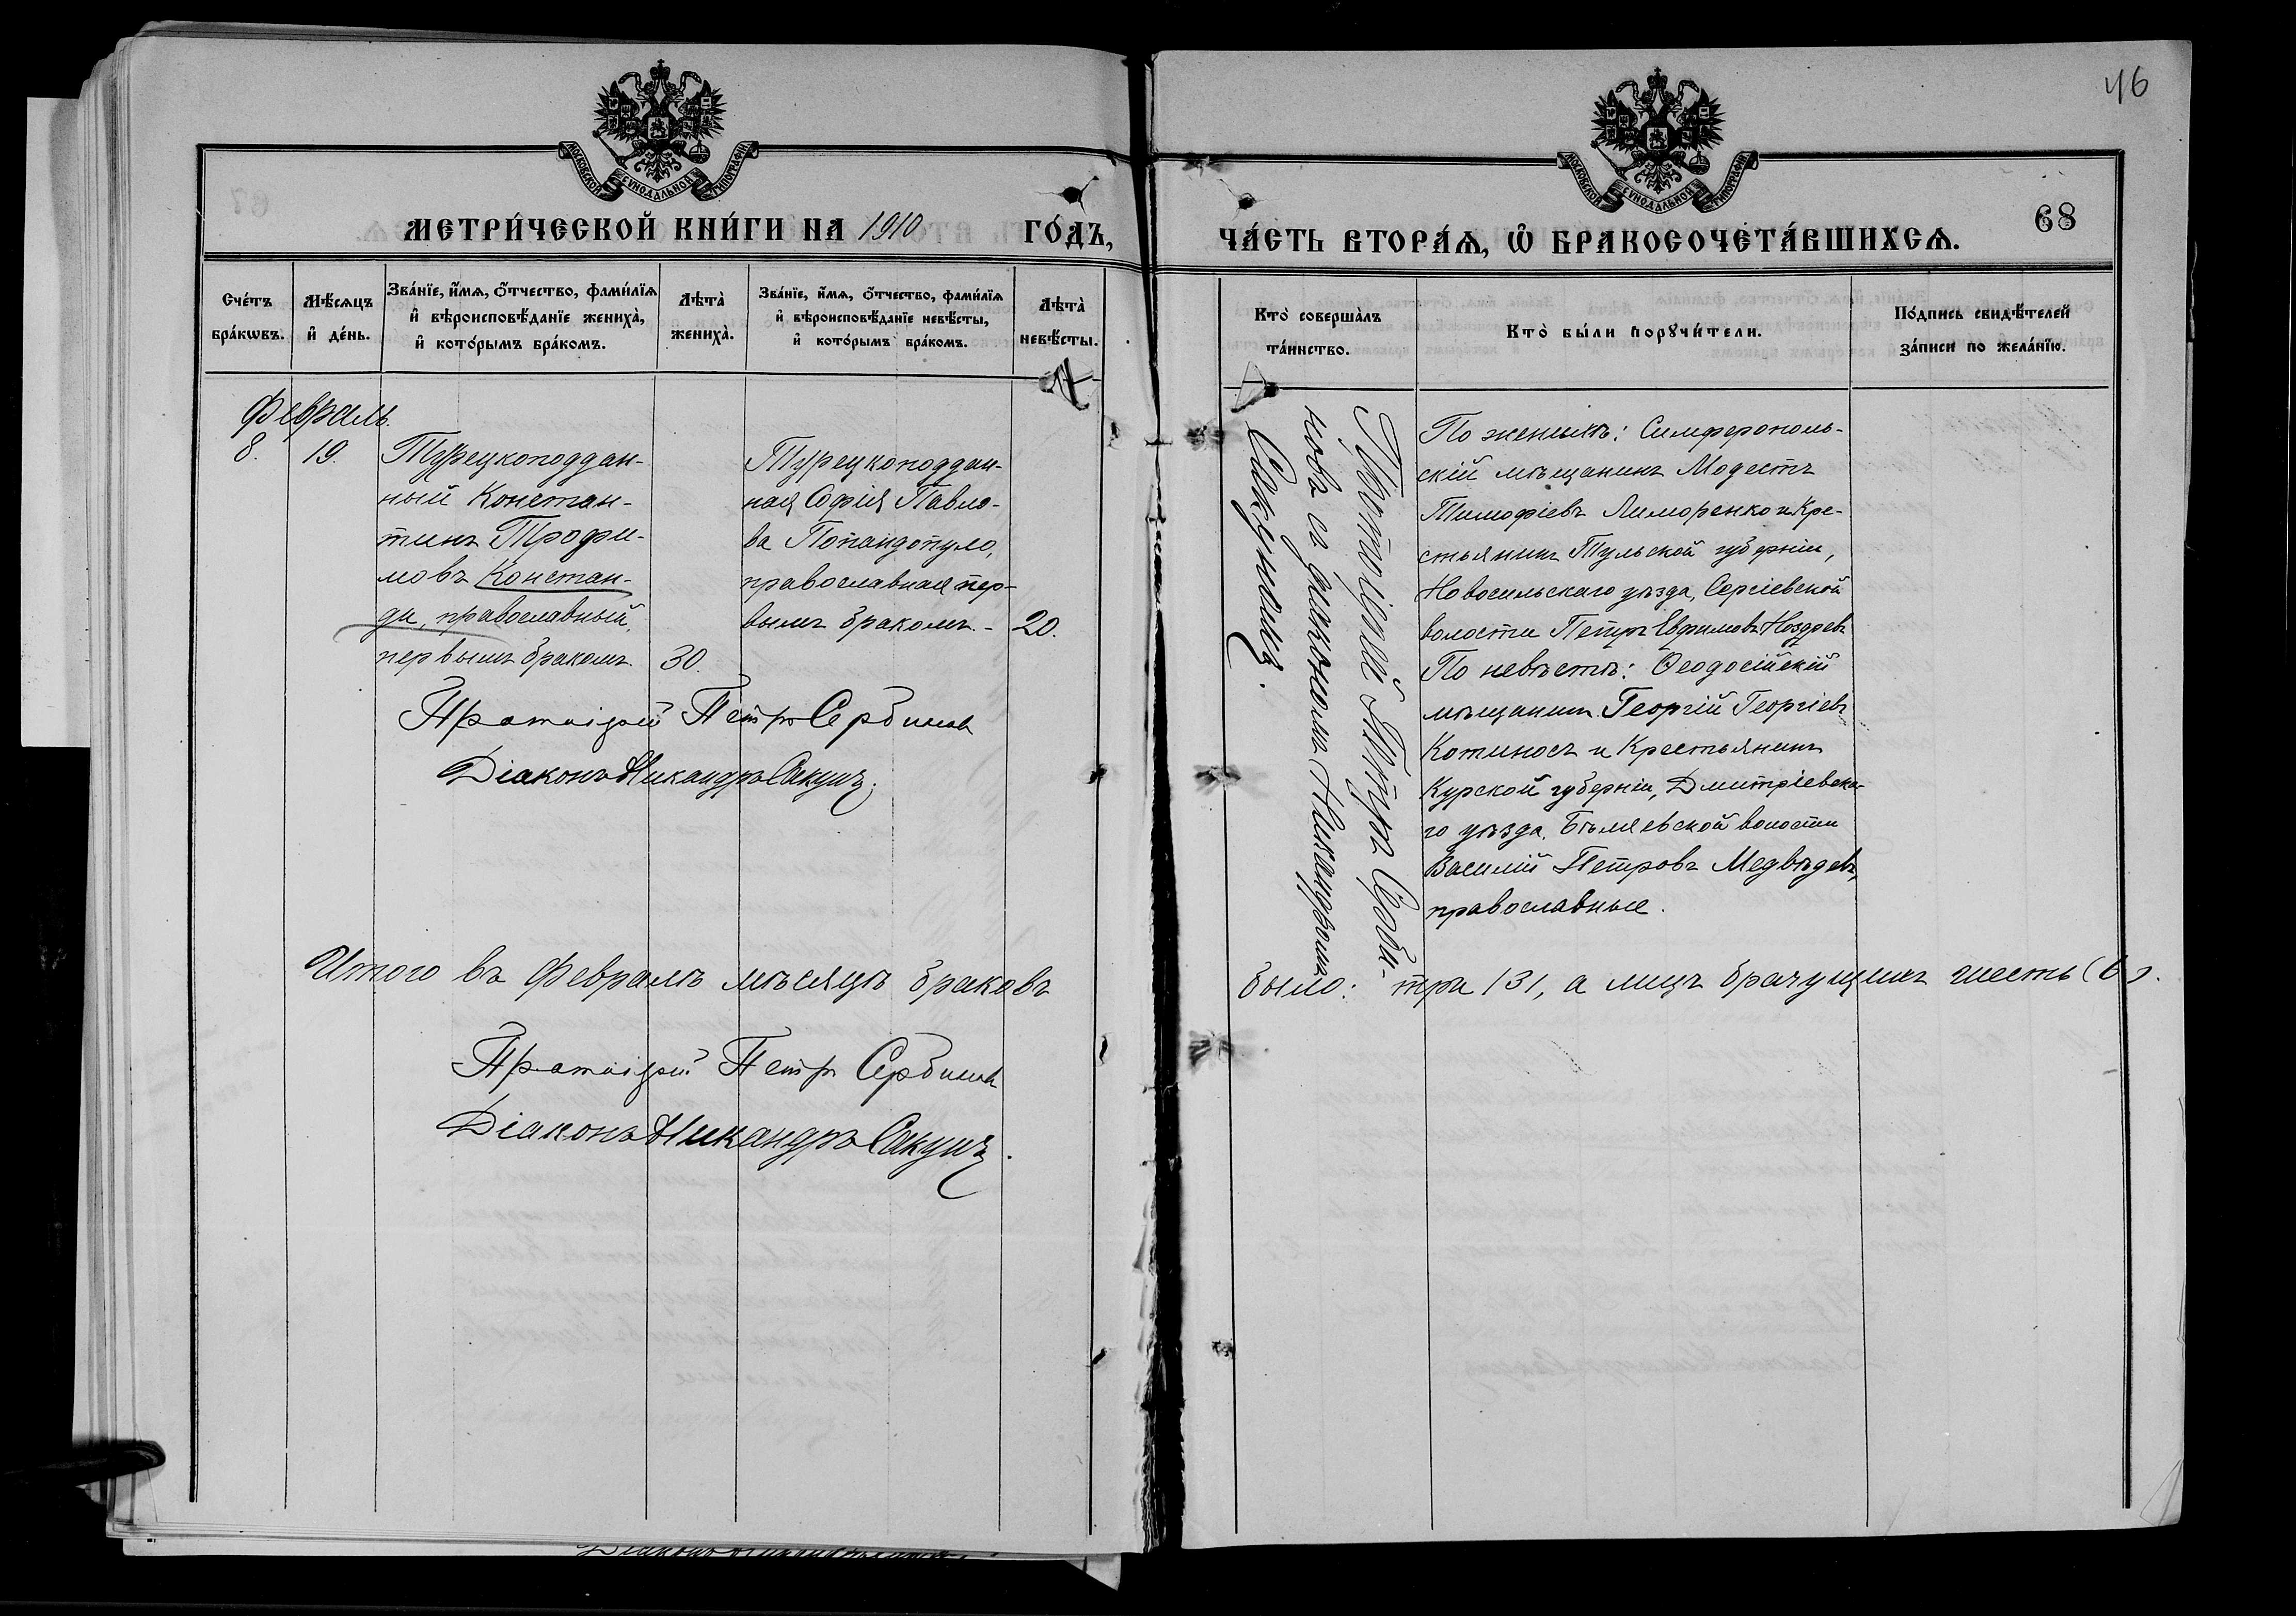 46
МОСКОВСКОЙ СУНОДАЛЬНОЙ ТИПОГРАФІИ
МОСКОВСКОЙ СУНОДАЛЬНОЙ ТИПОГРАФІИ
МЕТРИ́ЧЕСКОЙ КНИ́ГИ НА 1910 ГО́ДЪ,
ЧА́СТЬ ВТОРА́Ѧ, Ѡ҆ БРАКОСОЧЕТА́ВШИХСѦ.
68
Сче́тъ бра́кѡвъ.
Мѣ́сяцъ и҆ де́нь.
Зва́нїе, и҆́мѧ, ѻ҆́тчество, фами́лїѧ
и҆ вѣроисповѣ́данїе жениха̀,
и҆ кото́рымъ бра́комъ.
Лѣта̀ жениха̀.
Зва́нїе, и҆́мѧ, ѻ҆́тчество, фами́лїѧ
и҆ вѣроисповѣ́данїе невѣ́сты,
и҆ кото́рымъ бра́комъ.
Лѣта̀ невѣ́сты.
Кто̀ соверша́лъ та́инство.
Кто̀ бы́ли порꙋчи́тели.
По́дпись свидѣ́телей
за́писи по жела́нїю.
Февраль.
8.
19.
Турецкоподдан-
ный Констан-
тинъ Трофи-
мовъ Констан-
ди, православный,
первымъ бракомъ
30.
Турецкоподдан-
ная Софія Павло-
ва Попандопуло,
православная пер-
вымъ бракомъ. -
20.
Протоіерей Петръ Сербиновъ
Діаконъ Никандръ Сакунъ.
Протоіерей Петръ Серби-
новъ съ діакономъ Никандромъ
Сакуномъ.
По женихѣ: Симферополь-
скій мѣщанинъ Модестъ
Тимофіевъ Лиморенко и Кре-
стьянинъ Тульской губерніи,
Новосильскаго уѣзда, Сергіевской
волости Петръ Евфимовъ Ноздревъ
По невѣстѣ: Ѳеодосійскій
мѣщанинъ Георгій Георгіевъ
Котиносъ и Крестьянинъ
Курской губерніи, Дмитріевска-
го уѣзда, Бѣляевской волости
Василій Петровъ Медвѣдевъ,
православные.
Итого въ Февралѣ мѣсяцѣ браковъ
было: три (3), а лицъ брачущихъ шесть (6).
Протоіерей Петръ Сербиновъ
Діаконъ Никандръ Сакунъ.